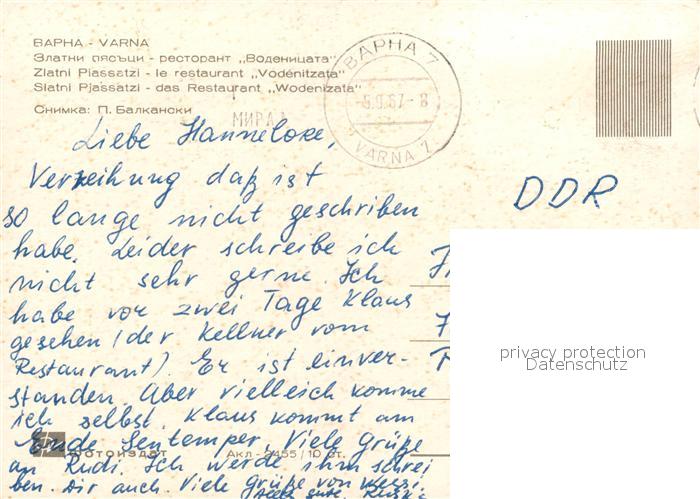 ВАРНА - VARNA
Златни пясъци - ресторант „Воденицата"
Zlatni Piassatzi - le restaurant „Vodénitzata"
Slatni Pjassatzi - das Restaurant „Wodenizata"
Снимка: П. Балкански
ВАРНА 7
5.9.67-8
VARNA 7
МИРА
Liebe Hannelore,
Verzeihung daß ist
so lange nicht geschriben
habe. Leider schreibe ich
nicht sehr gerne. Ich
habe vor zwei Tage Klaus
gesehen (der Kellner vom
Restaurant). Er ist einver-
standen. Aber vielleich komme
ich selbst. Klaus kommt am
Ende Sentemper. Viele Grüße
an Rudi. Ich werde ihm schrei
ben. Dir auch. Viele Grüße von
DDR
Фотоиздат
Акл - 2455 / 10 ст.
privacy protection
Datenschutz